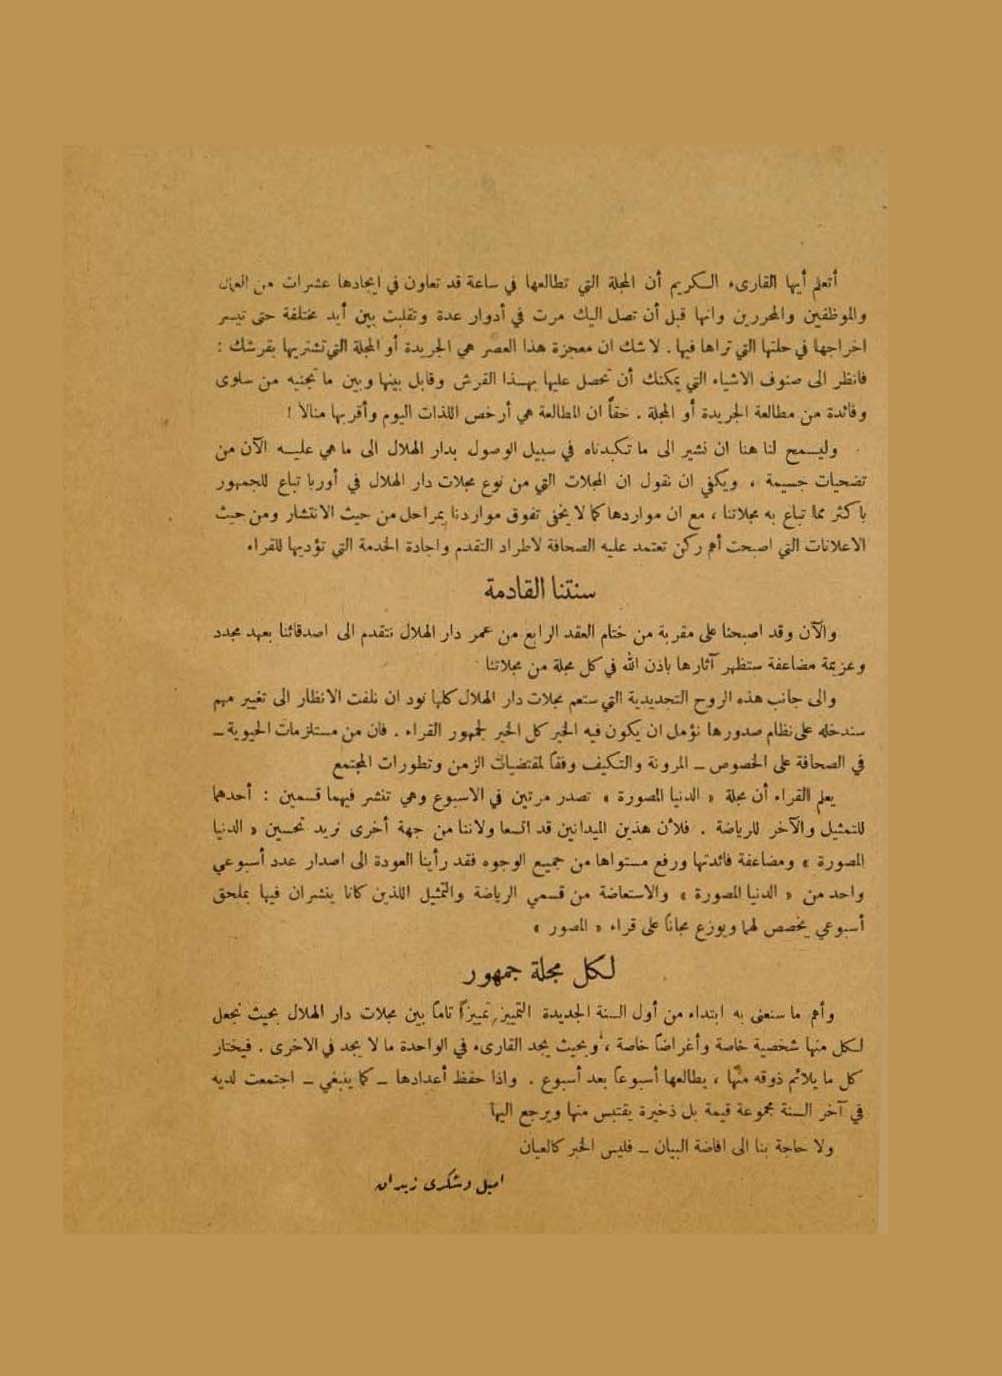 أتعلم أيها القارىء الكريم أن المجلة التي تطالعها في ساعة قد تعاون في ايجادها عشرات من العمال
والموظفين والمحررين وانها قبل أن تصل اليك مرت في أدوار عدة وتقلبت بين أيد مختلفة حتى تيسر
اخراجها في حلتها التي تراها فيها . لا شك ان معجزة هذا العصر هي الجريدة أو المجلة التي تشتريها بقرشك :
فانظر الى صنوف الاشياء التي يمكنك أن تحصل عليها بهذا القرش وقابل بينها وبين ما تجنيه من سلوى
وفائدة من مطالعة الجريدة أو المجلة . حقاً ان المطالعة هي أرخص اللذات اليوم وأقربها منالا !
وليسمح لنا هنا ان نشير الى ما تكبدناه في سبيل الوصول بدار الهلال الى ما هي عليه الآن من
تضحيات جسيمة ، ويكفي ان نقول ان المجلات التي من نوع مجلات دار الهلال في أوربا تباع للجمهور
باكثر مما تباع به مجلاتنا ، مع ان مواردها كما لا يخفى تفوق مواردنا بمراحل من حيث الانتشار ومن حيث
الاعلانات التي اصبحت أهم ركن تعتمد عليه الصحافة لاطراد التقدم واجادة الخدمة التي تؤديها للقراء
سنتنا القادمة
والآن وقد اصبحنا على مقربة من ختام العقد الرابع من عمر دار الهلال نتقدم الى اصدقائنا بعهد مجدد
وعزيمة مضاعفة ستظهر آثارها باذن الله في كل مجلة من مجلاتنا
والى جانب هذه الروح التجديدية التي ستعم مجلات دار الهلال كلها نود ان نلفت الانظار الى تغيير مهم
سندخله على نظام صدورها نؤمل ان يكون فيه الخير كل الخير لجمهور القراء . فان من مستلزمات الحيوية –
في الصحافة على الخصوص – المرونة والتكيف وفقاً لمقتضيات الزمن وتطورات المجتمع
يعلم القراء أن مجلة « الدنيا المصورة » تصدر مرتين في الاسبوع وهي تنشر فيهما قسمين : أحدهما
للتمثيل والآخر للرياضة . فلأن هذين الميدانين قد اتسعا ولاننا من جهة أخرى نريد تحسين « الدنيا
المصورة » ومضاعفة فائدتها ورفع مستواها من جميع الوجوه فقد رأينا العودة الى اصدار عدد أسبوعي
واحد من « الدنيا المصورة » والاستعاضة من قسمي الرياضة والتمثيل اللذين كانا ينشران فيها بملحق
أسبوعي يخصص لهما ويوزع مجاناً على قراء « المصور »
لكل مجلة جمهور
وأهم ما سنعنى به ابتداء من أول السنة الجديدة التمييز تمييزاً تاماً بين مجلات دار الهلال بحيث نجعل
لكل منها شخصية خاصة وأغراضاً خاصة ، وبحيث يجد القارىء في الواحدة ما لا يجد في الاخرى . فيختار
كل ما يلائم ذوقه منها ، يطالعها أسبوعاً بعد أسبوع . واذا حفظ أعدادها – كما ينبغي – اجتمعت لديه
في آخر السنة مجموعة قيمة بل ذخيرة يقتبس منها ويرجع اليها
ولا حاجة بنا الى افاضة البيان – فليس الخبر كالعيان
اميل وشكرى زيدان